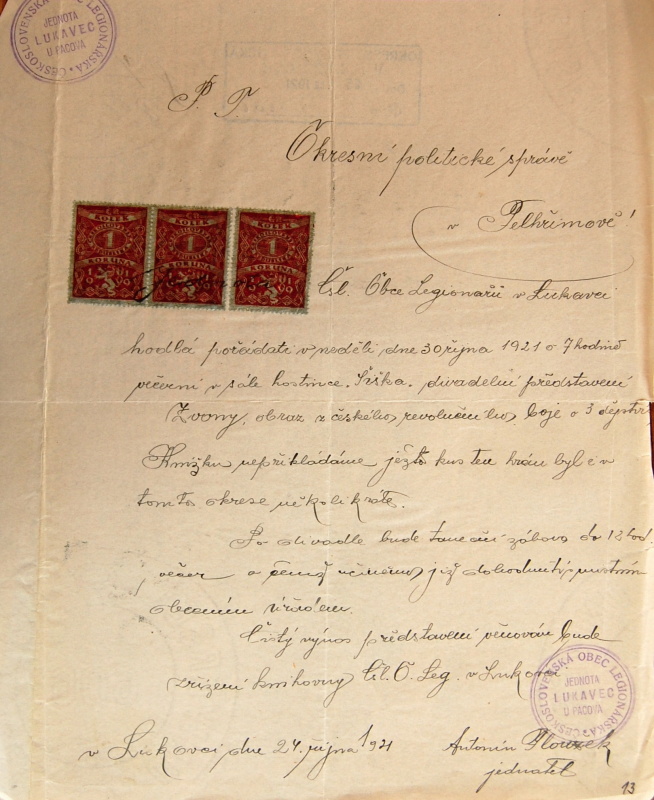 ČESKOSLOVENSKÁ OBEC LEGIONÁŘSKÁ
JEDNOTA
LUKAVEC
U PACOVA
P. T.
Okresní politické správě
v Pelhřimově!
KOLEK KOLEK KOLEK
1 1 1
KORUNA KORUNA KORUNA
Čsl. Obce Legionářů v Lukavci
hodlá pořádati v neděli dne 30 října 1921 o 7 hodině
večerní v sále hostince. Šiška. divadelní představení
Zvony, obraz z českého revolučního boje o 3 dějstv
Knížku nepřikládáme ježto kus ten hrán byl i v
tomto okrese několikráte.
Po divadle bude taneční zábava do 12 hod.
večer o čemž učiněno již dohodnutí s místním
obecním úřadem.
Čistý výnos představení věnován bude
zřízení knihovny Čsl. O. Leg. v Lukavci
v Lukavci dne 24 října 1921
Antonín
jednatel
ČESKOSLOVENSKÁ OBEC LEGIONÁŘSKÁ
JEDNOTA
LUKAVEC
U PACOVA
13